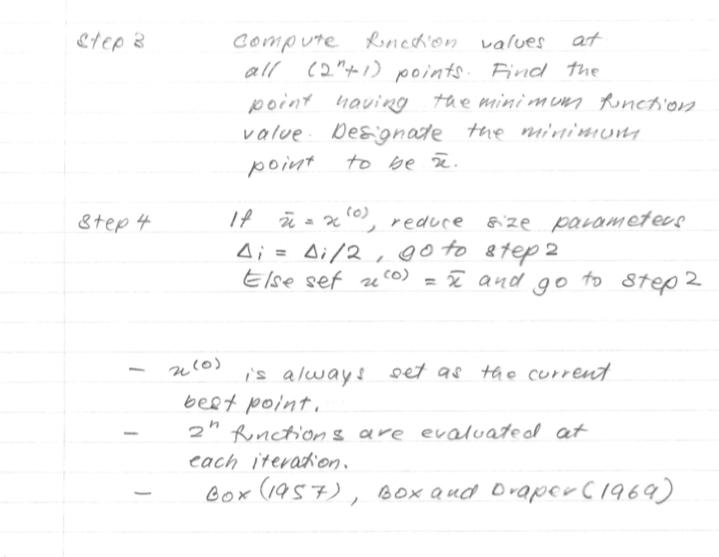 Step 3 Compute function values at
all (2ⁿ+1) points. Find the
point having the minimum function
value. Designate the minimum
point to be x̄.
Step 4 If x̄ = x⁽⁰⁾, reduce size parameters
Δi = Δi/2, go to step 2
Else set x⁽⁰⁾ = x̄ and go to step 2
– x⁽⁰⁾ is always set as the current
best point.
– 2ⁿ functions are evaluated at
each iteration.
– Box (1957), Box and Draper (1969)